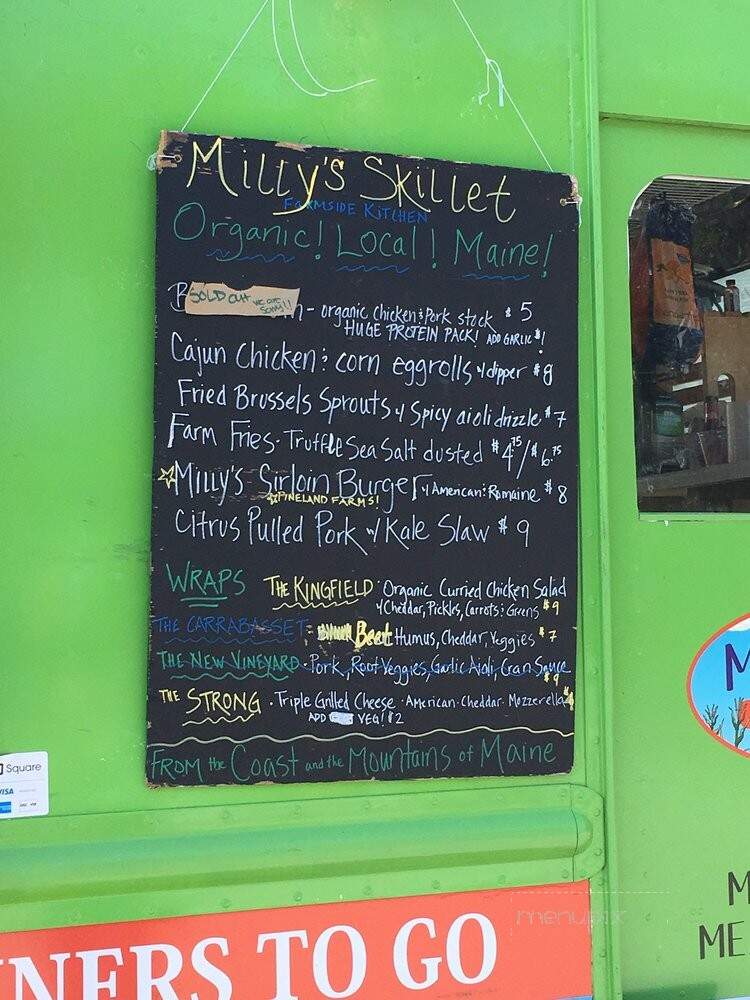 Milly's Skillet
FARMSIDE KITCHEN
Organic! Local! Maine!
SOLD OUT WE ARE SORRY!!
- organic chicken & Pork stock $5
HUGE PROTEIN PACK! ADD GARLIC $1
Cajun Chicken & corn eggrolls w/ dipper $8
Fried Brussels Sprouts w/ Spicy aioli drizzle $7
Farm Fries - Truffle Sea Salt dusted $4.75/$6.75
Milly's Sirloin Burger w/ American & Romaine $8
PINELAND FARMS!
Citrus Pulled Pork w/ Kale Slaw $9
WRAPS THE KINGFIELD - Organic Curried Chicken Salad
w/ Cheddar, Pickles, Carrots & Greens $9
THE CARRABASSET - Beet Humus, Cheddar, Veggies $7
THE NEW VINEYARD - Pork, Root Veggies, Garlic Aioli, Cran Sauce
$9
THE STRONG - Triple Grilled Cheese - American - Cheddar - Mozzerella
ADD VEG! $2
FROM the Coast and the Mountains of Maine
Square
VISA
NERS TO GO
M
M
ME
menupix